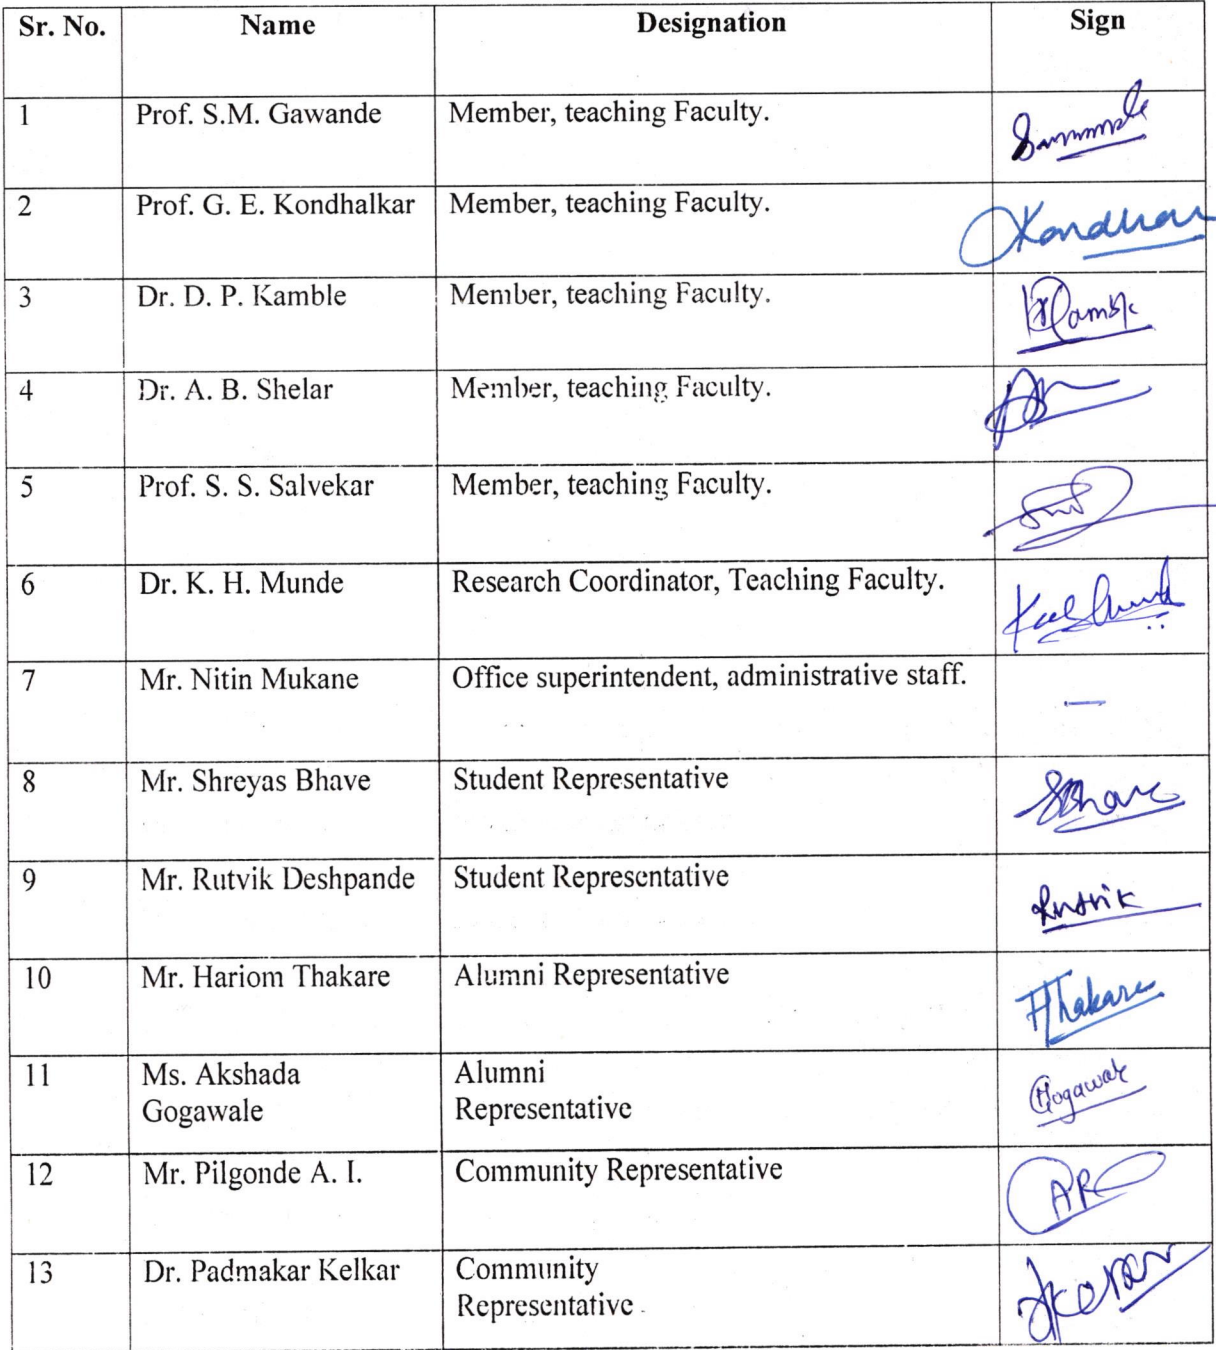 Sr. No. Name Designation Sign
1 Prof. S.M. Gawande Member, teaching Faculty.
2 Prof. G. E. Kondhalkar Member, teaching Faculty.
3 Dr. D. P. Kamble Member, teaching Faculty.
4 Dr. A. B. Shelar Member, teaching Faculty.
5 Prof. S. S. Salvekar Member, teaching Faculty.
6 Dr. K. H. Munde Research Coordinator, Teaching Faculty.
7 Mr. Nitin Mukane Office superintendent, administrative staff. —
8 Mr. Shreyas Bhave Student Representative SBhave
9 Mr. Rutvik Deshpande Student Representative Rutvik
10 Mr. Hariom Thakare Alumni Representative HThakare
11 Ms. Akshada Alumni Gogawale
Gogawale Representative
12 Mr. Pilgonde A. I. Community Representative
13 Dr. Padmakar Kelkar Community
Representative